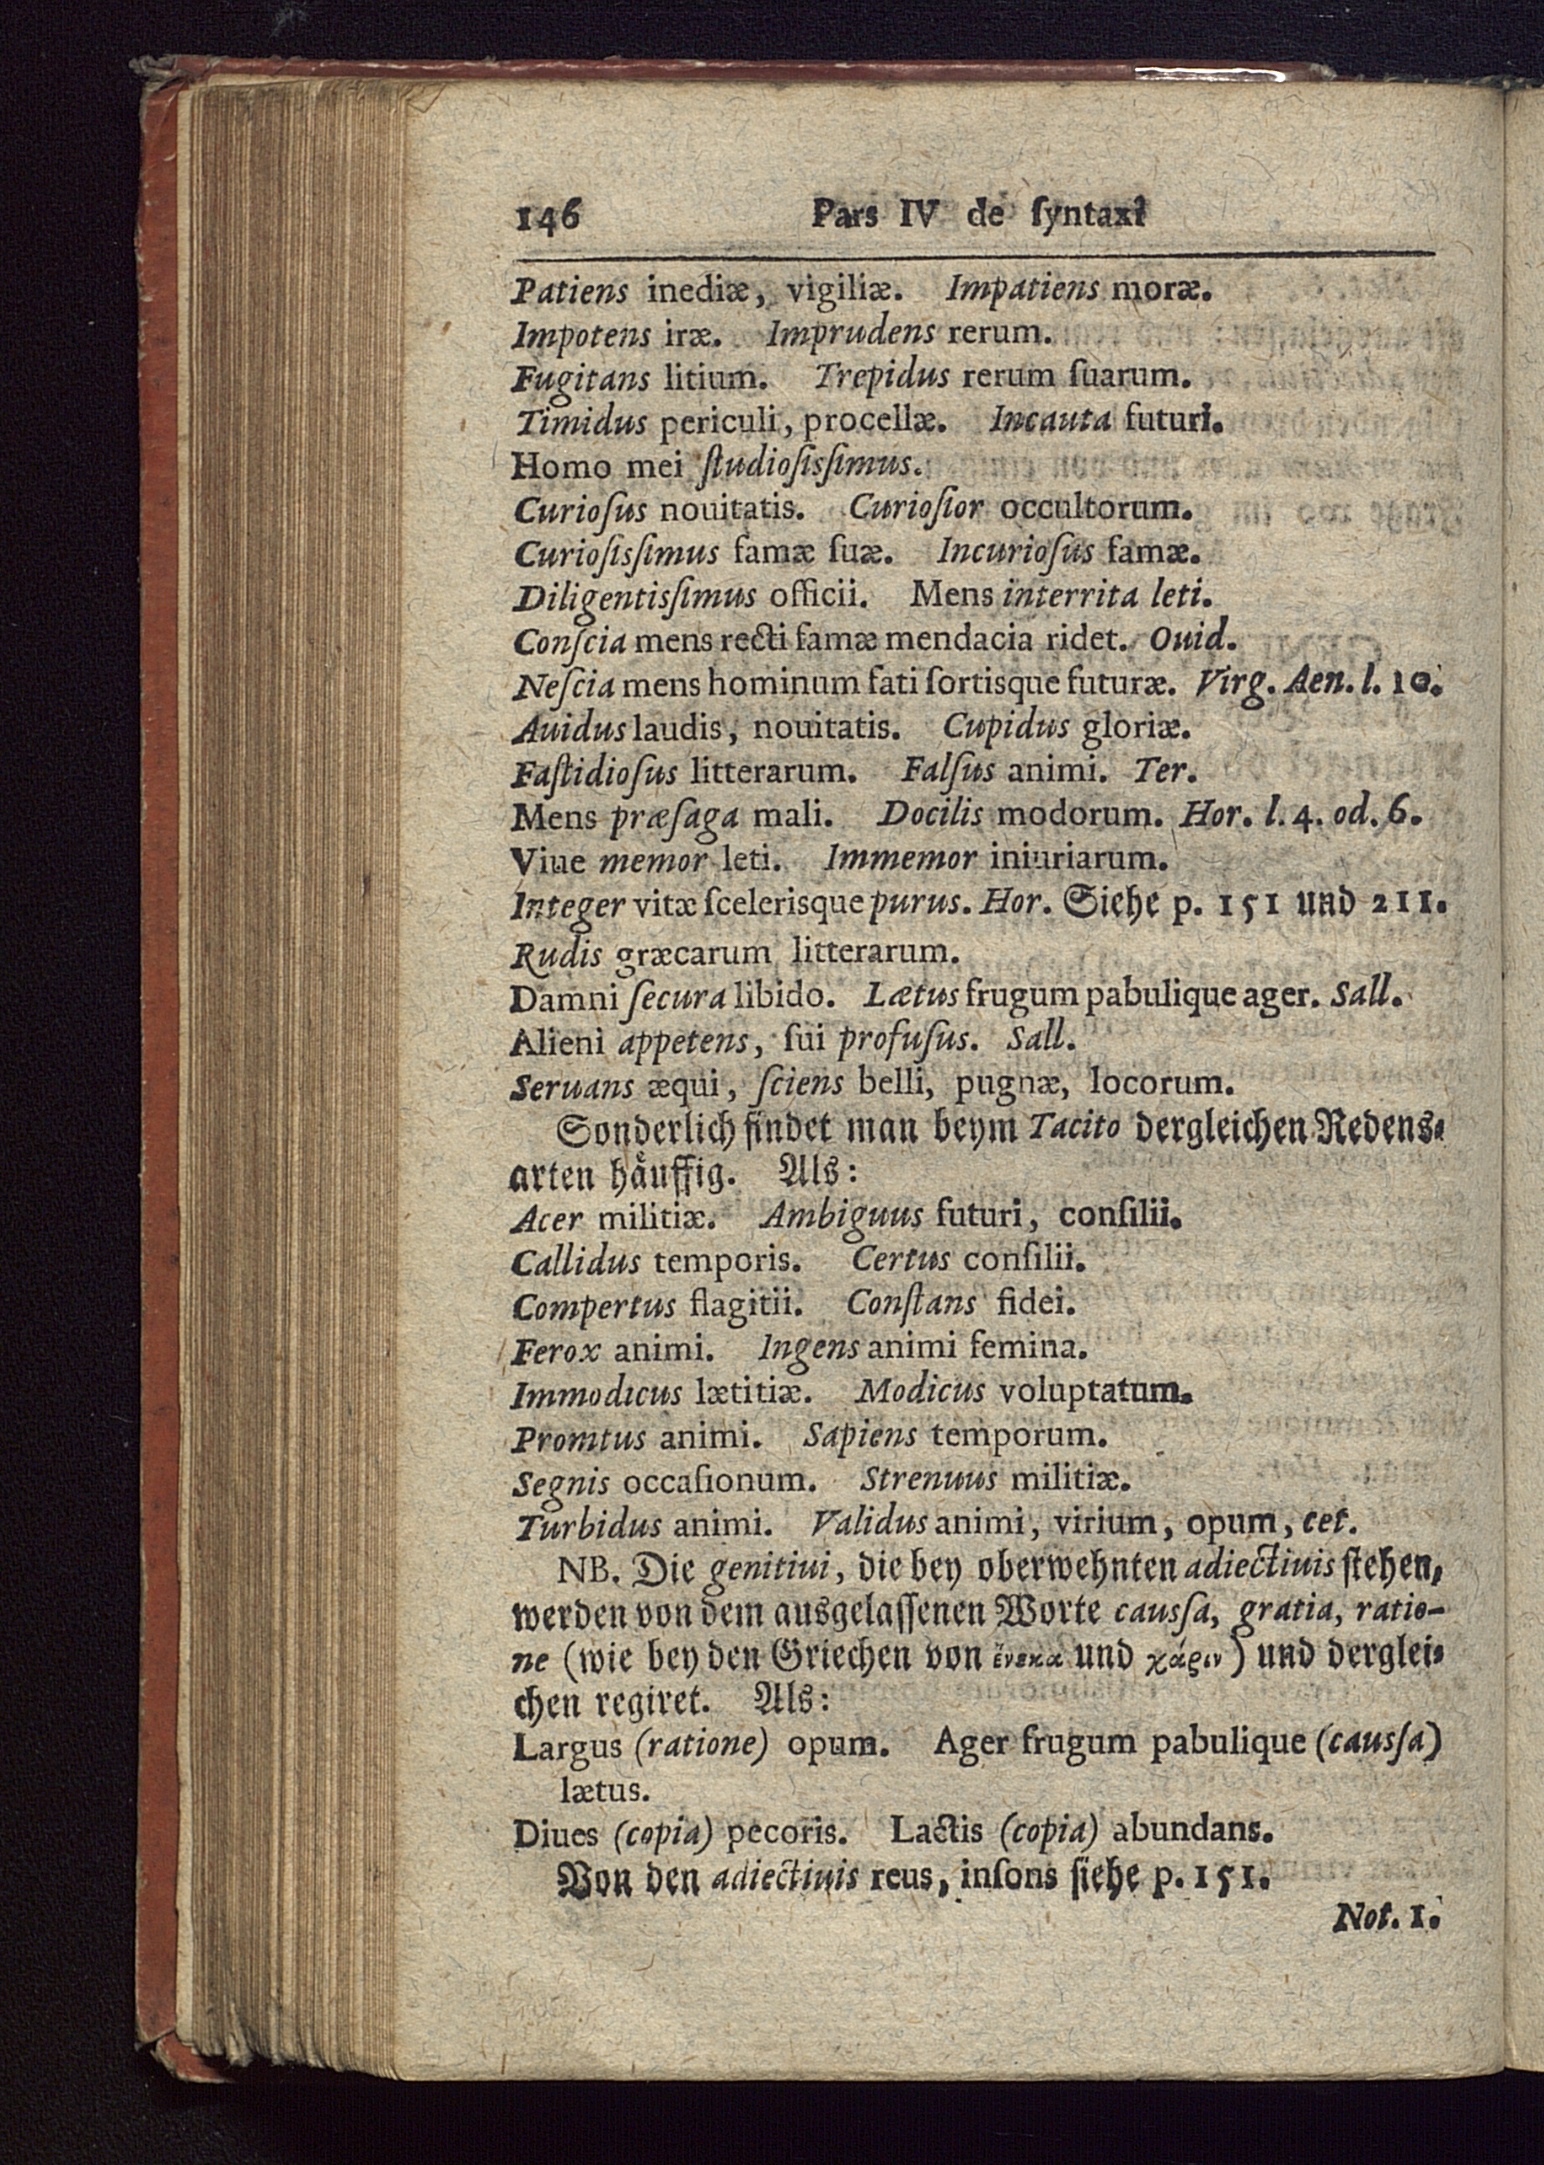 146 Pars IV de ſyntaxi
Patiens inediæ, vigiliæ. Impatiens moræ.
Impotens iræ. Imprudens rerum.
Fugitans litium. Trepidus rerum ſuarum.
Timidus periculi, procellæ. Incauta futuri.
Homo mei ſtudioſisſimus.
Curioſus nouitatis. Curioſior occultorum.
Curioſisſimus famæ ſuæ. Incurioſus famæ.
Diligentisſimus officii. Mens interrita leti.
Conſcia mens recti famæ mendacia ridet. Ouid.
Neſcia mens hominum fati ſortisque futuræ. Virg. Aen. l. 10.
Auidus laudis, nouitatis. Cupidus gloriæ.
Faſtidioſus litterarum. Falſus animi. Ter.
Mens præſaga mali. Docilis modorum. Hor. l. 4. od. 6.
Viue memor leti. Immemor iniuriarum.
Integer vitæ ſcelerisque purus. Hor. Siehe p. 151 und 211.
Rudis græcarum litterarum.
Damni ſecura libido. Lætus frugum pabulique ager. Sall.
Alieni appetens, ſui profuſus. Sall.
Seruans æqui, ſciens belli, pugnæ, locorum.
Sonderlich findet man beym Tacito dergleichen Redens-
arten häuffig. Als:
Acer militiæ. Ambiguus futuri, conſilii.
Callidus temporis. Certus conſilii.
Compertus flagitii. Conſtans fidei.
Ferox animi. Ingens animi femina.
Immodicus lætitiæ. Modicus voluptatum.
Promtus animi. Sapiens temporum.
Segnis occaſionum. Strenuus militiæ.
Turbidus animi. Validus animi, virium, opum, cet.
NB. Die genitiui, die bey oberwehnten adiectiuis ſtehen,
werden von dem ausgelaſſenen Worte causſa, gratia, ratio-
ne (wie bey den Griechen von ἕνεκα und χάριν) und derglei-
chen regiret. Als:
Largus (ratione) opum. Ager frugum pabulique (causſa)
lætus.
Diues (copia) pecoris. Lactis (copia) abundans.
Von den adiectiuis reus, inſons ſiehe p. 151.
Not. 1.